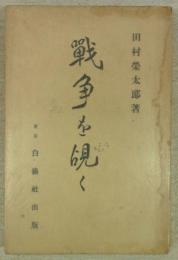 田村榮太郎著
戰爭を覘く
東京
白揚社出版